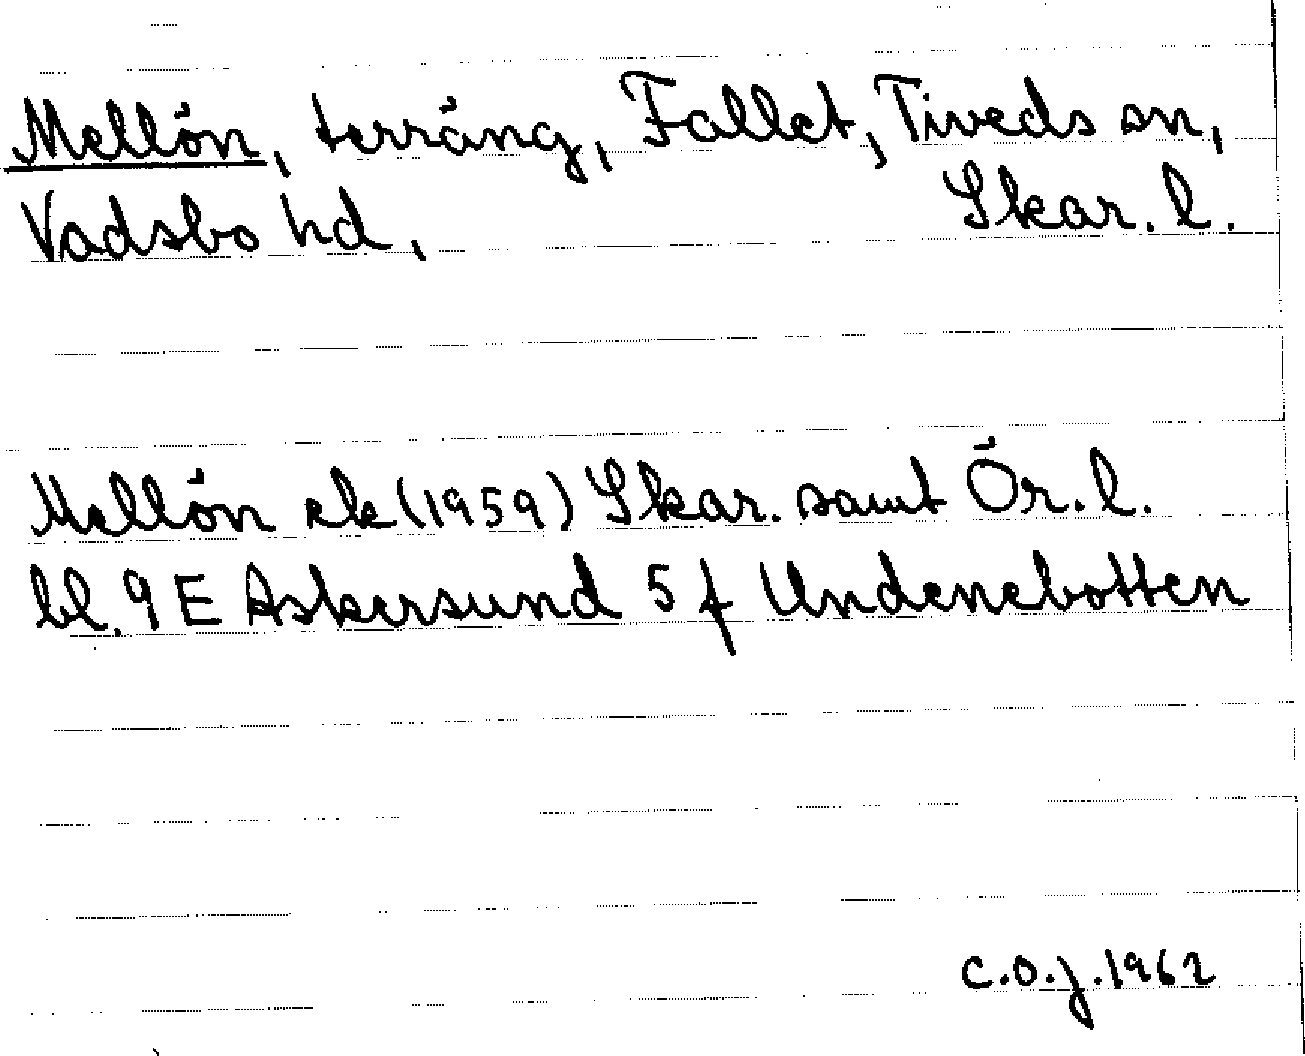 Mellön, terräng, Fallet, Tiveds sn,
Vadsbo hd, Skar. l.
Mellön ek (1959) Skar. samt Ör. l.
bl. 9 E Askersund 5 f Undenebotten
C.O.J. 1962